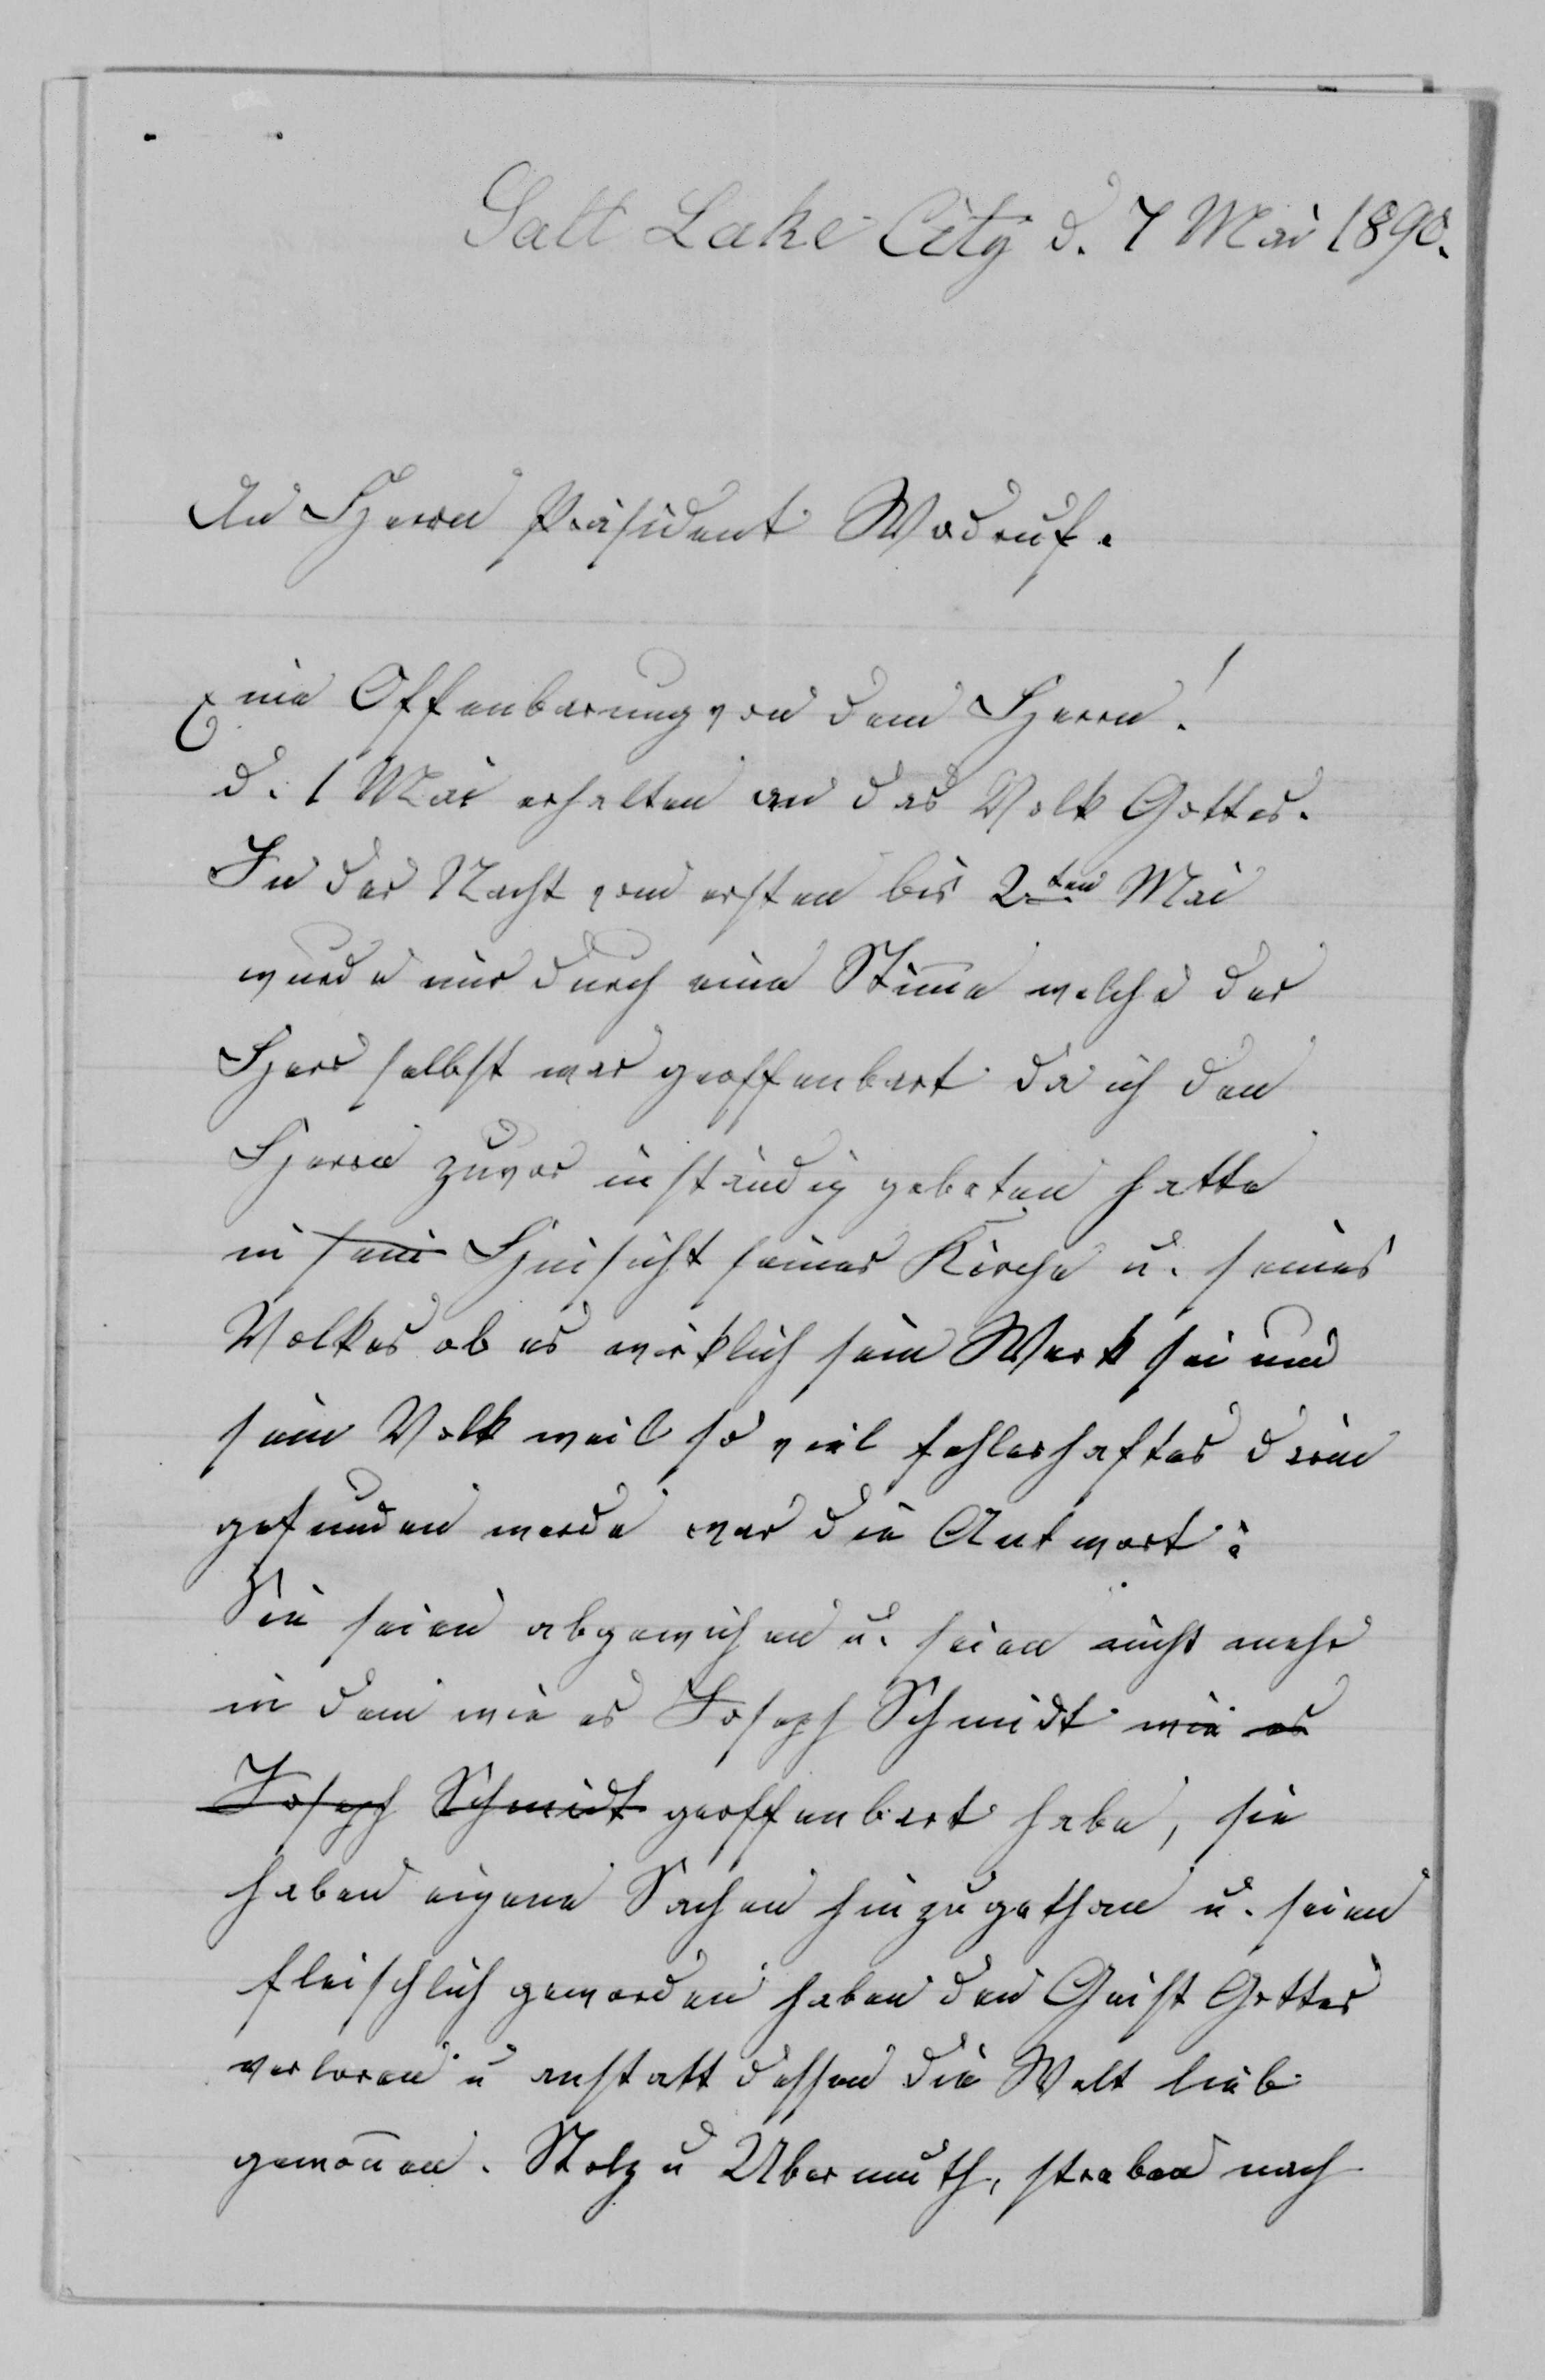 Salt Lake City d. 7 Mai 1890.
An Herrn Präsident Wodruf.
Eine Offenbarung von dem Herrn!
d. 1 Mai erhalten an das Volk Gottes.
In der Nacht vom ersten bis 2ten Mai
wurde mir durch eine Stim̄e welche der
Herr selbst war geoffenbart da ich den
Herrn zuvor inständig gebeten hatte
in sein Hinsicht seiner Kirche u. seines
Volkes ob es wirklich sein Werk sei und
sein Volk weil so viel fehlerhaftes darin
gefunden werde war die Antwort:
Sie seien abgewichen u. seien nicht mehr
in dem wie es Joseph Schmidt wie es
Joseph Schmidt geoffenbart habe, sie
haben eigene Sachen hinzugethan u. seien
fleischlich geworden haben den Geist Gottes
verloren u anstatt dessen die Welt lieb
gewon̄en. Stolz u Ubermuth, streben nach